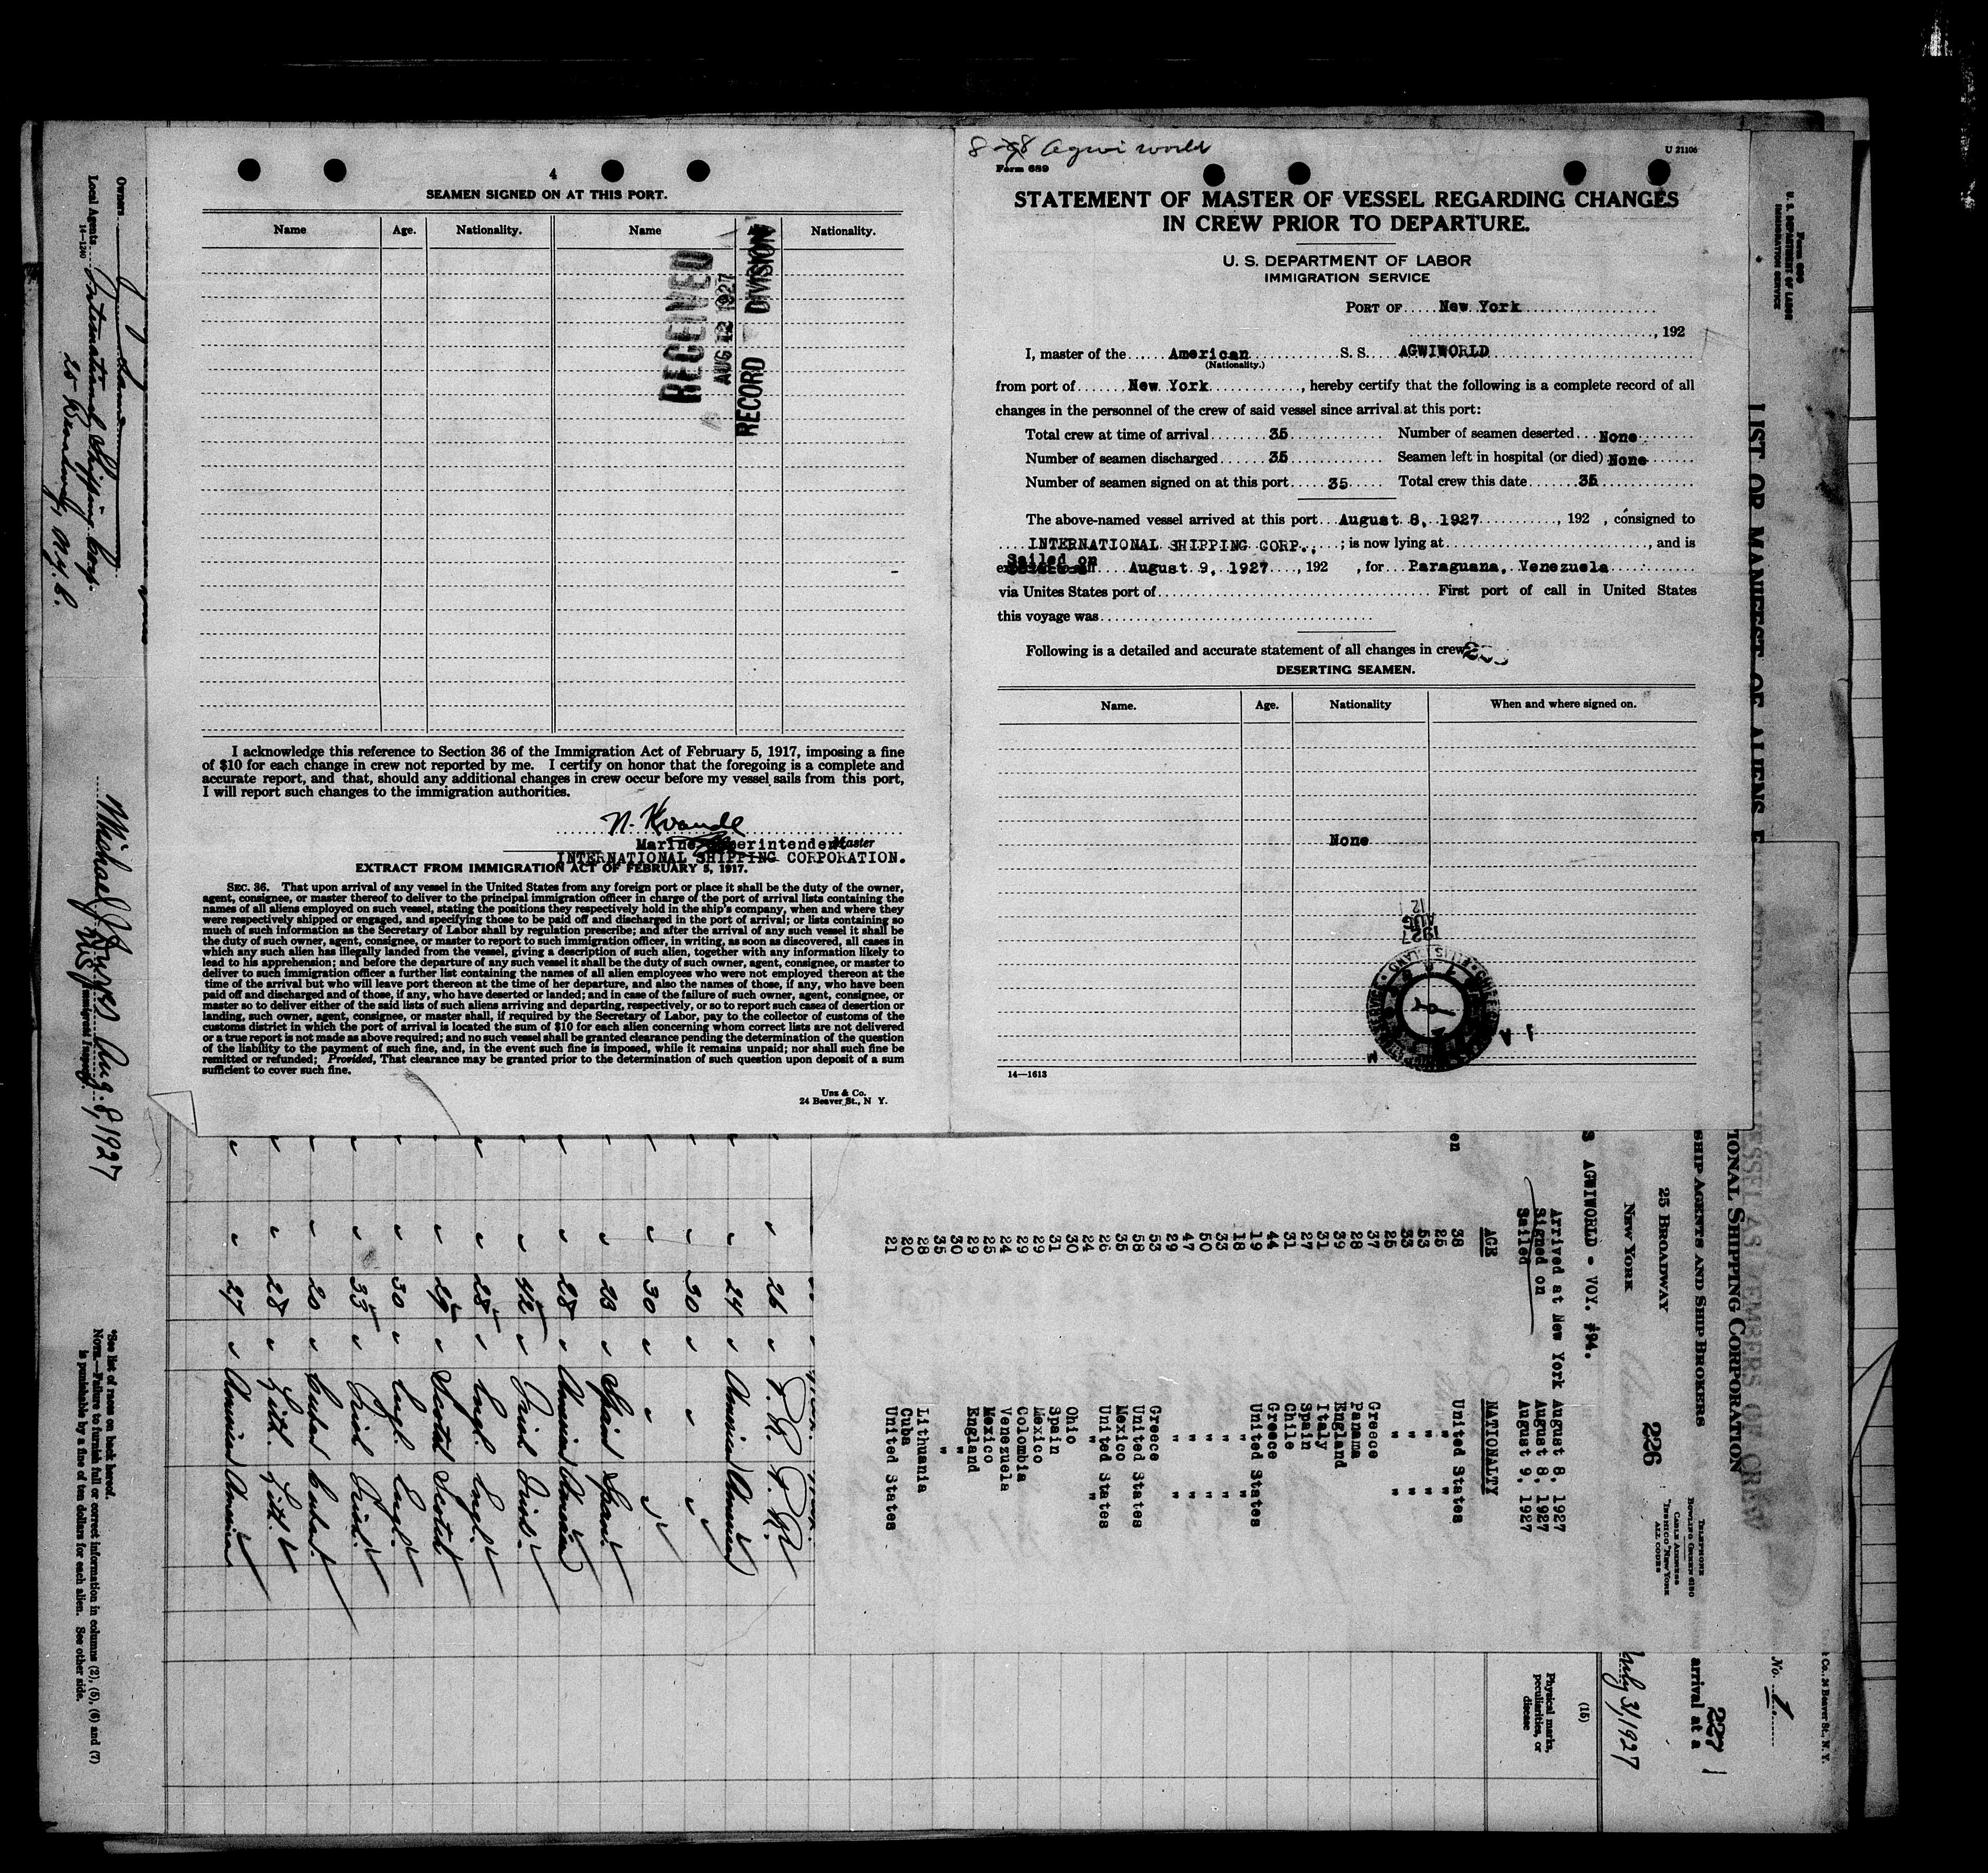 4
SEAMEN SIGNED ON AT THIS PORT.
Name Age. Nationality. Name Nationality.
RECEIVED
AUG 12 1927
RECORD DIVISION
I acknowledge this reference to Section 36 of the Immigration Act of February 5, 1917, imposing a fine
of $10 for each change in crew not reported by me. I certify on honor that the foregoing is a complete and
accurate report, and that, should any additional changes in crew occur before my vessel sails from this port,
I will report such changes to the immigration authorities.
N. Kvande
Marine Superintendent Master
INTERNATIONAL SHIPPING CORPORATION.
EXTRACT FROM IMMIGRATION ACT OF FEBRUARY 5, 1917.
SEC. 36. That upon arrival of any vessel in the United States from any foreign port or place it shall be the duty of the owner,
agent, consignee, or master thereof to deliver to the principal immigration officer in charge of the port of arrival lists containing the
names of all aliens employed on such vessel, stating the positions they respectively hold in the ship's company, when and where they
were respectively shipped or engaged, and specifying those to be paid off and discharged in the port of arrival; or lists containing so
much of such information as the Secretary of Labor shall by regulation prescribe; and after the arrival of any such vessel it shall be
the duty of such owner, agent, consignee, or master to report to such immigration officer, in writing, as soon as discovered, all cases in
which any such alien has illegally landed from the vessel, giving a description of such alien, together with any information likely to
lead to his apprehension; and before the departure of any such vessel it shall be the duty of such owner, agent, consignee, or master to
deliver to such immigration officer a further list containing the names of all alien employees who were not employed thereon at the
time of the arrival but who will leave port thereon at the time of her departure, and also the names of those, if any, who have been
paid off and discharged and of those, if any, who have deserted or landed; and in case of the failure of such owner, agent, consignee, or
master so to deliver either of the said lists of such aliens arriving and departing, respectively, or so to report such cases of desertion or
landing, such owner, agent, consignee, or master shall, if required by the Secretary of Labor, pay to the collector of customs of the
customs district in which the port of arrival is located the sum of $10 for each alien concerning whom correct lists are not delivered
or a true report is not made as above required; and no such vessel shall be granted clearance pending the determination of the question
of the liability to the payment of such fine, and, in the event such fine is imposed, while it remains unpaid; nor shall such fine be
remitted or refunded; Provided, That clearance may be granted prior to the determination of such question upon deposit of a sum
sufficient to cover such fine.
UDE & CO.
24 Beaver St., N Y.
Agwiworld
U 21106
Form 689
STATEMENT OF MASTER OF VESSEL REGARDING CHANGES
IN CREW PRIOR TO DEPARTURE.
U. S. DEPARTMENT OF LABOR
IMMIGRATION SERVICE
PORT OF New York
, 192
I, master of the American S. S. AGWIWORLD
(Nationality.)
from port of New York , hereby certify that the following is a complete record of all
changes in the personnel of the crew of said vessel since arrival at this port:
Total crew at time of arrival 35 Number of seamen deserted None
Number of seamen discharged 35 Seamen left in hospital (or died) None
Number of seamen signed on at this port 35 Total crew this date 35
The above-named vessel arrived at this port August 8, 1927 , 192 , consigned to
INTERNATIONAL SHIPPING CORP., ; is now lying at , and is
Sailed on
August 9, 1927 , 192 , for Paraguana, Venezuela
via Unites States port of First port of call in United States
this voyage was
Following is a detailed and accurate statement of all changes in crew
DESERTING SEAMEN.
Name. Age. Nationality When and where signed on.
None
12
AUG
1927
14—1613
Form 689
U. S. DEPARTMENT OF LABOR
IMMIGRATION SERVICE
LIST OR MANIFEST OF ALIENS
TIONAL SHIPPING CORPORATION
SHIP AGENTS AND SHIP BROKERS
25 BROADWAY
NEW YORK
226
TELEPHONE
BOWLING GREEN 6180
CABLE ADDRESS
"INSHICO" NEW YORK
ALL CODES
AGWIWORLD - VOY. #94.
Arrived at New York August 8, 1927
Signed on August 8, 1927
Sailed August 9, 1927
AGE NATIONALTY
38 United States
25 "
53 "
33 "
25 "
37 Greece
28 Panama
39 England
31 Italy
27 Spain
31 Chile
44 Greece
19 United States
18 "
33 "
50 "
47 "
29 "
53 Greece
58 United States
35 Mexico
26 United States
24 "
30 Ohio
31 Spain
29 Mexico
29 Colombia
24 Venezuela
25 Mexico
29 England
30 "
35 "
28 Lithuania
20 Cuba
21 United States
No. 1
227
arrival at a
July 31 1927
(15)
Physical marks,
peculiarities, or
disease
" 26 " P.R. P.R.
" 24 " American American
" 30 " " "
" 30 " " "
" 23 " Spain Span.
" 28 " American American
" 42 " Irish Irish
" 25 " Engl. Engl.
" 29 " Scotch Scotch
" 30 " Engl. Engl.
" 35 " Irish Irish
" 20 " Cuban Cuban
" 28 " Lith. Lith.
" 27 " American American
Owners
Local Agents International Shipping Corp.
25 Broadway, N.Y.C.
14—1240
Aug. 8, 1927
Immigrant Inspector.
*See list of races on back hereof.
NOTE.—Failure to furnish full or correct information in columns (2), (5), (6) and (7)
is punishable by a fine of ten dollars for each alien. See other side.